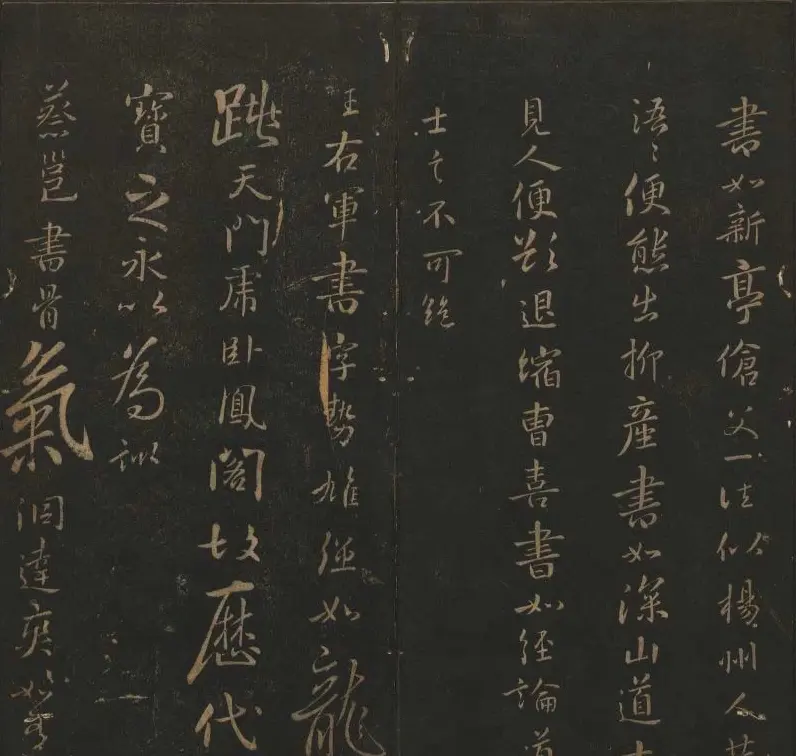 書如新亭傖父一往似楊州人共
語〻便態出柳產書如深山道士
見人便欲退縮曹喜書如經論道
士言不可絶
王右軍書字勢雄強如龍
跳天門虎卧鳳閣故歷代
寶之永以為訓
蔡邕書骨氣洞達爽如有